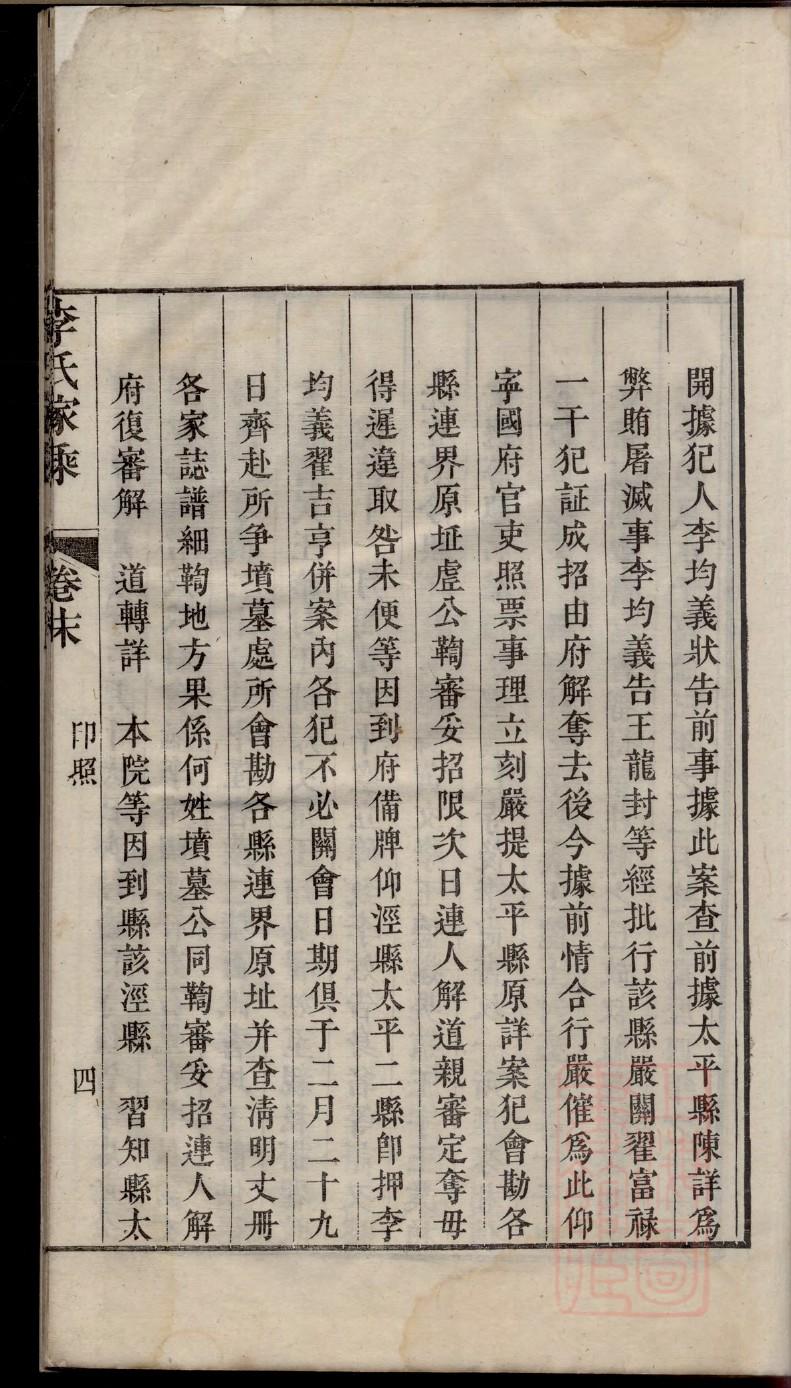 開據犯人李均義狀告前事據此案查前據太平縣陳詳爲
弊賄屠滅事李均義告王龍封等經批行該縣嚴關翟富祿
一干犯証成招由府解奪去後今據前情合行嚴催爲此仰
寕國府官吏照票事理立刻嚴提太平縣原詳案犯會勘各
縣連界原址虗公鞫審妥招限次日連人解道親審定奪毋
得遲違取咎未便等因到府備牌仰涇縣太平二縣卽押李
均義翟吉亨併案內各犯不必關會日期俱于二月二十九
日齊赴所争墳墓處所會勘各縣連界原址并查清明丈冊
各家誌譜細鞫地方果係何姓墳墓公同鞫審妥招連人解
府復審解　道轉詳　本院等因到縣該涇縣　習知縣太
李氏家乘　卷末　印照　四